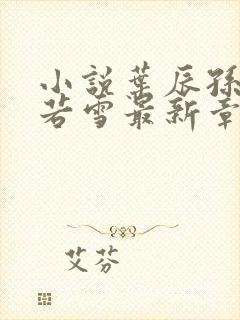 小説葉辰孫
若雪最新章
艾芬